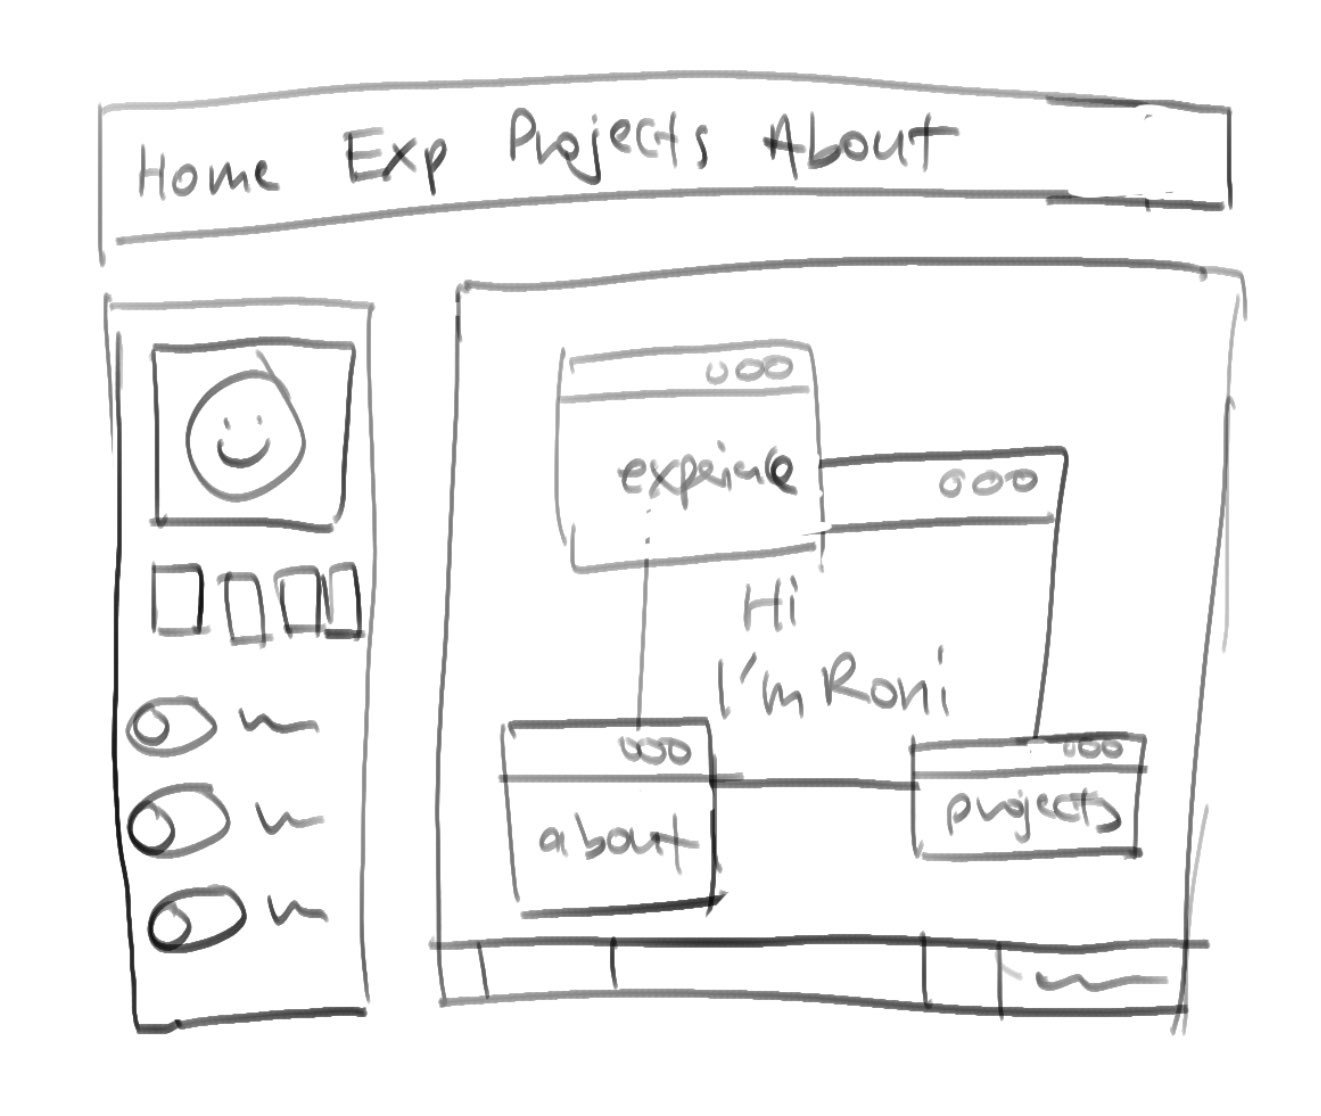 Home Exp Projects About
experience
Hi
I'm Roni
about
projects